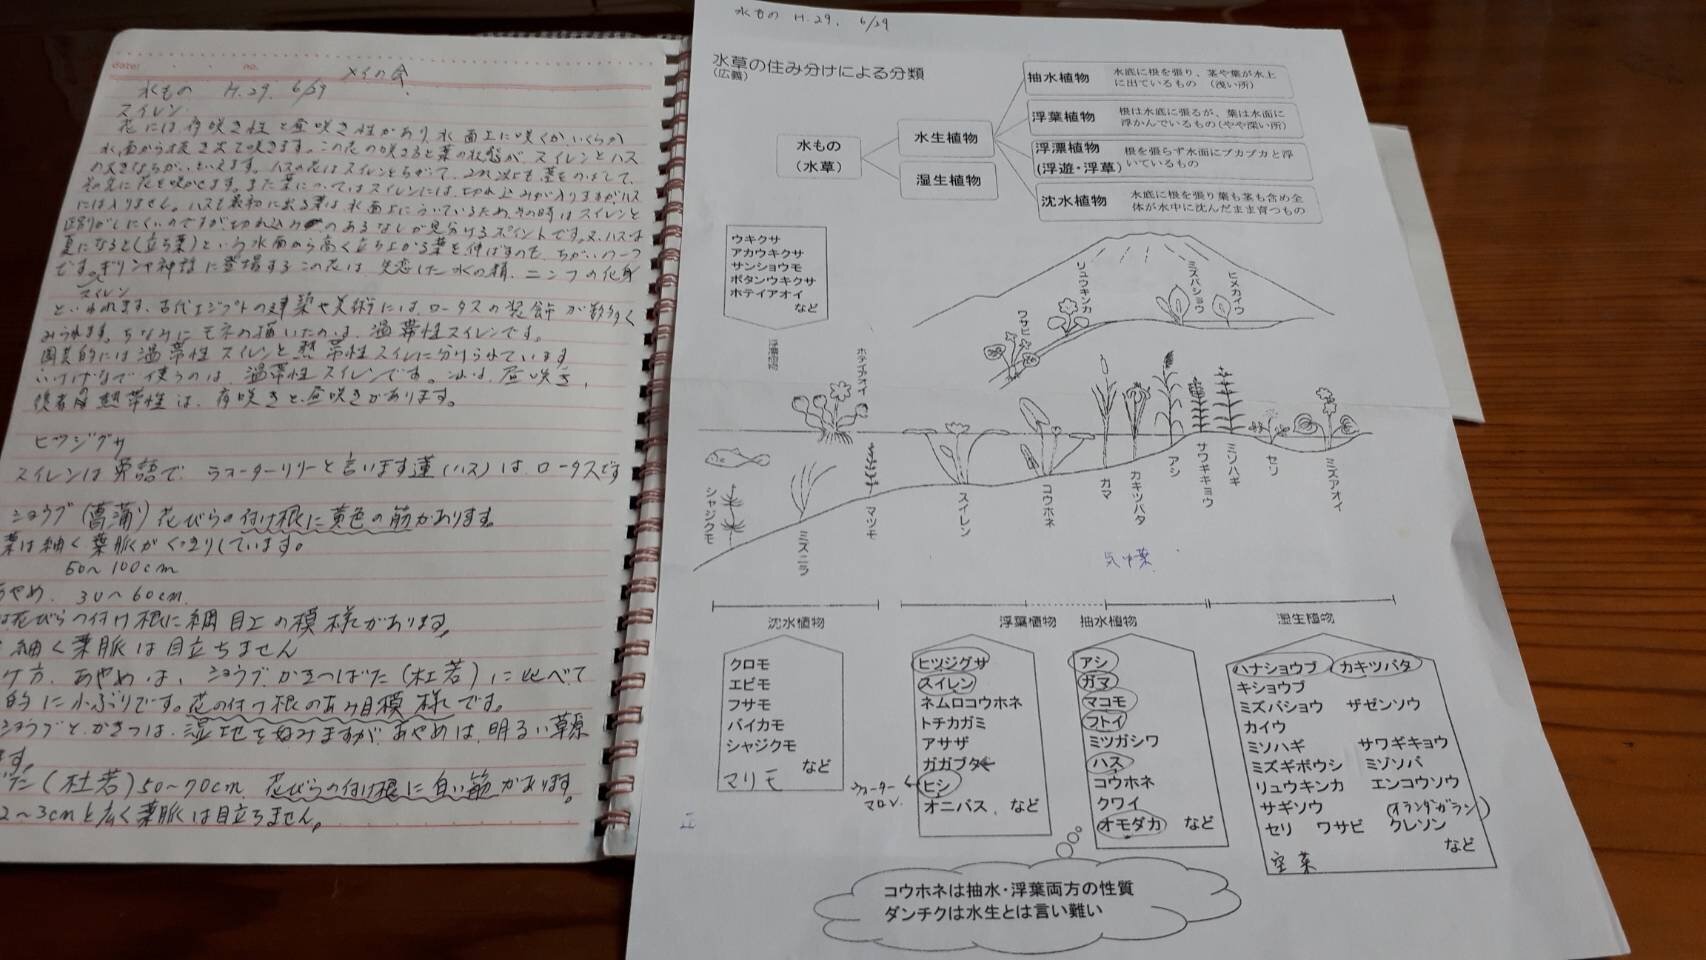 date: no.
メイの会
水もの H.29. 6/29
スイレン
花には夜咲き性と昼咲き性があり水面上に咲くか、いくらか
水面から抜き出て咲きます。この花の咲き方と葉の状態が、スイレンとハス
の大きなちがいといえます。ハスの花はスイレンとちがって、
その先に花を咲かせます。また葉についてはスイレンには、切れ込みが入りますがハス
には入りません。ハスも最初に出る葉は水面上にういているため、その時はスイレンと
区別がしにくいのですが切れ込みのあるなしが見分けるポイントです。又、ハスは
夏になると(立ち葉)という水面から高く立ち上がる葉を伸ばすのも、ちがいの一つ
です。ギリシャ神話に登場するこの花は、失恋した水の精、ニンフの化身
スイレン
といわれます、古代エジプトの建築や美術にはロータスの装飾が数多く
みられます。ちなみにモネの描いたのは、温帯性スイレンです。
園芸的には温帯性スイレンと熱帯性スイレンに分けられています
いけばなで使うのは、温帯性スイレンです。これは、昼咲き、
後者熱帯性は、夜咲きと、昼咲きがあります。
ヒツジグサ
スイレンは英語で、ウォーターリリーと言います蓮(ハス)はロータスです
ショウブ(菖蒲)花びらの付け根に黄色の筋があります。
葉は細く葉脈がくっきりしています。
50〜100cm
あやめ. 30〜60cm
は花びらの付け根に網目上の模様があります。
細く葉脈は目立ちません
け方、あやめは、ショウブ、かきつばた(杜若)に比べて
的に小ぶりです。花の付け根のあみ目模様です。
ショウブと、かきつは、湿地を好みますが、あやめは、明るい草原
ます。
ばた(杜若)50〜70cm、花びらの付け根に白い筋があります。
2〜3cmと広く葉脈は目立ちません。
水もの H.29. 6/29
水草の住み分けによる分類
(広義)
水もの
(水草)
水生植物
湿生植物
抽水植物 水底に根を張り、茎や葉が水上
に出ているもの (浅い所)
浮葉植物 根は水底に張るが、葉は水面に
浮かんでいるもの(やや深い所)
浮漂植物
(浮遊・浮草)
根を張らず水面にプカプカと浮
いているもの
沈水植物 水底に根を張り葉も茎も含め全
体が水中に沈んだまま育つもの
ウキクサ
アカウキクサ
サンショウモ
ボタンウキクサ
ホテイアオイ
など
浮漂植物
ホテイアオイ
ワサビ
リュウキンカ
ミズバショウ
ヒメカイウ
シャジクモ
ミズニラ
マツモ
スイレン
コウホネ
ガマ
カキツバタ
アシ
サワギキョウ
ミソハギ
セリ
ミズアオイ
気中葉
沈水植物
浮葉植物
抽水植物
湿生植物
クロモ
エビモ
フサモ
バイカモ
シャジクモ
など
マリモ
ヒツジグサ
スイレン
ネムロコウホネ
トチカガミ
アサザ
ガガブタ
ヒシ
オニバス、など
ウォーター
マロン
アシ
ガマ
マコモ
フトイ
ミツガシワ
ハス
コウホネ
クワイ
オモダカ など
ハナショウブ カキツバタ
キショウブ
ミズバショウ ザゼンソウ
カイウ
ミソハギ サワギキョウ
ミズギボウシ ミゾソバ
リュウキンカ エンコウソウ
サギソウ (オランダガラシ)
セリ ワサビ クレソン
など
空菜
コウホネは抽水・浮葉両方の性質
ダンチクは水生とは言い難い